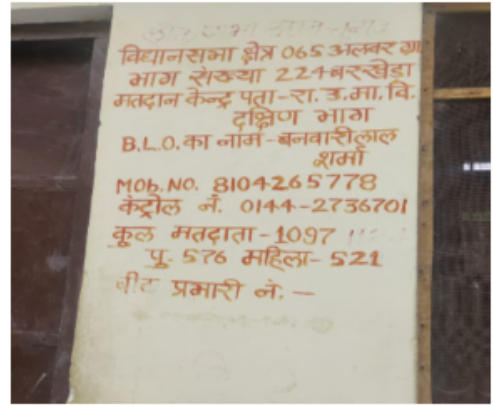 विधानसभा क्षेत्र 065 अलवर ग्रा
भाग संख्या 224 बरखेडा
मतदान केन्द्र पता-रा. उ.मा. वि.
दक्षिण भाग
B.L.O. का नाम-बनवारीलाल
शर्मा
MOb. NO. 8104265778
कंट्रोल नं. 0144-2736701
कूल मतदाता-1097
पु. 576 महिला-521
बीट प्रभारी नं:-